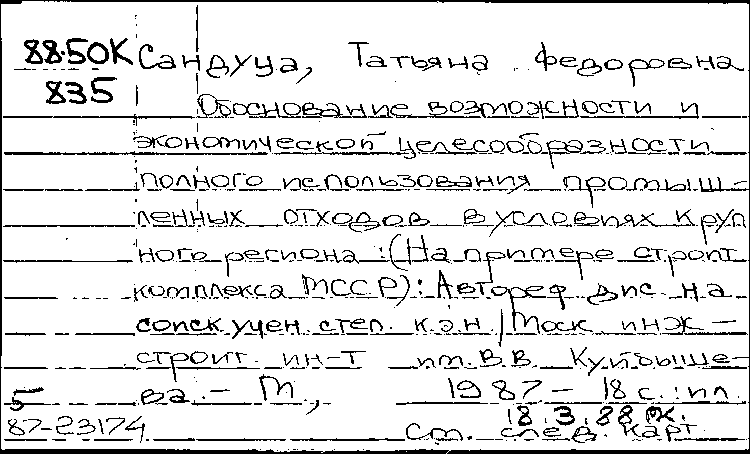 88-50К Сандуца, Татьяна Федоровна
835
Обоснование возможности и
экономической целесообразности
полного использования промыш-
ленных отходов в условиях круп
ного региона : (На примере строит
комплекса МССР) : Автореф дис. на
соиск учен. степ. к.э.н / Моск инж -
строит. ин-т им. В.В. Куйбыше-
5 ва. - М, 1987 - 18 с. : ил.
87-23174 18.3.88
См. след. карт